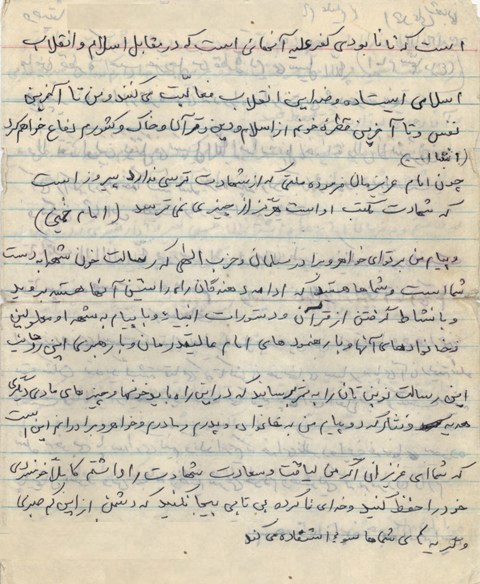 است که تا نابودی کفر علیه آنهائی است که در مقابل اسلام و انقلاب
اسلامی ایستاده و ضد این انقلاب فعالیت می کنند و من تا آخرین
نفس و تا آخرین قطره خونم از اسلام و دین و قرآن و خاک و کشورم دفاع خواهم کرد
(انشاءالله)
چون امام عزیزمان فرموده ملتی که از شهادت ترسی ندارد پیروز است
که شهادت مکتب اوست هرگز از چیزی نمی ترسد (امام خمینی)
و پیام من به برادران و خواهر و برادر مسلمان و حزب الهی که رسالت خون شهدا به دست
شما است و شماها هستید که ادامه دهندگان راه راستین آنها هستید بروید
و با نشاط گرفتن از قرآن و دستورات انبیاء و با پیام به شهدا و معلولین
و خانوادهای آنها و با رهنمودهای امام عالیقدرمان و با رهبری این
این رسالت نوین تان را به ثمر برسانید که در این راه باید خونها و چیزهای مادی دیگری
هدیه و نثار کرد و پیام من به خانواده و پدرم و مادرم و خواهر و برادرانم این است
که شما ای عزیزان اگر من لیاقت و سعادت شهادت را داشتم کاملا خونسردی
خود را حفظ کنید و خدای ناکرده بی تابی بیجا نکنید که دشمن از این کم صبری
و گریه های شماها سوء استفاده می کند